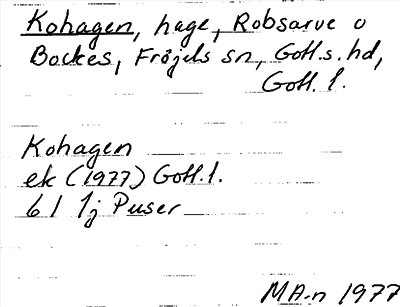 Kohagen, hage, Robsarve o
Bockes, Fröjels sn, Gotl.s.hd,
Gotl. l.
Kohagen
ek (1977) Gotl.l.
6 I 1j Puser
MA-n 1977